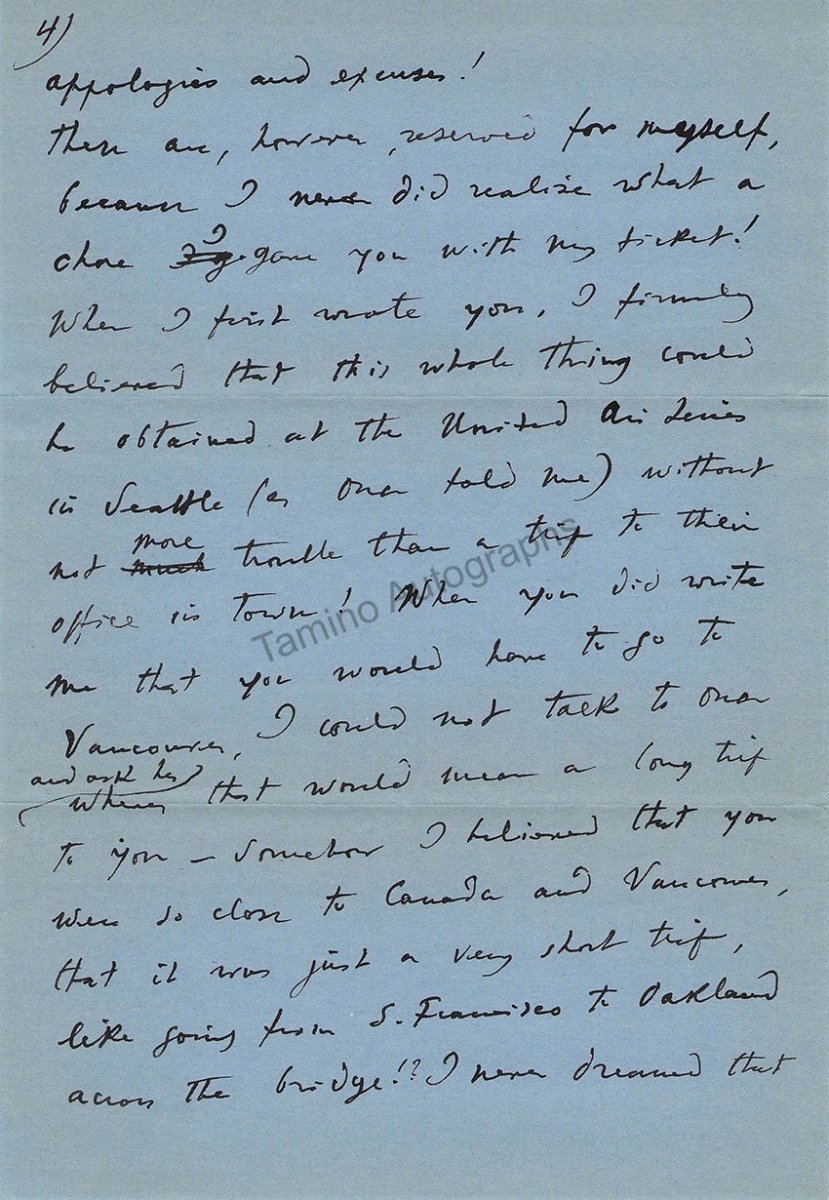 4)
appologies and excuses!
These are, however, reserved for myself,
because I never did realize what a
chore I gave you with my ticket!
When I first wrote you, I firmly
believed that this whole thing could
be obtained at the United Air Lines
in Seattle (as Onar told me) without
not more trouble than a trip to their
office in town! When you did write
me that you would have to go to
Vancouver, I could not talk to Onar
and ask her
that would mean a long trip
to you – Somehow I believed that you
were so close to Canada and Vancouver,
that it was just a very short trip,
like going from S. Francisco to Oakland
across the bridge!? I never dreamed that
Tamino Autographs